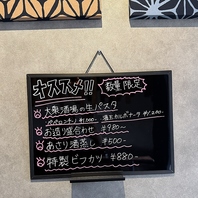 オススメ!! 数量限定
大衆酒場の生パスタ
ペペロンチーノ ¥1,000-
お造り盛合わせ ¥980-
あさり酒蒸し ¥500-
特製ビフカツ ¥880-